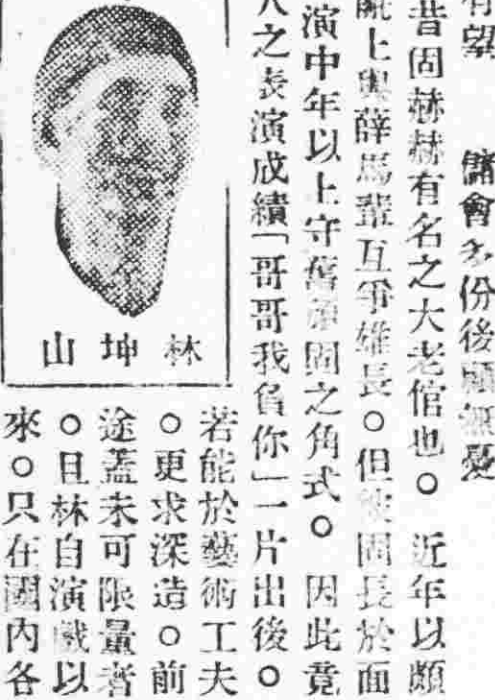 有望　儲會多份後顧無憂
昔固赫赫有名之大老倌也。近年以頗
上與薛馬輩互爭雄長。但彼固長於面
演中年以上守舊頑固之角式。因此竟
人之表演成績「哥哥我負你」一片出後。
林坤山
若能於藝術工夫
。更求深造。前
途蓋未可限量者
。且林自演戲以
來。只在國內各